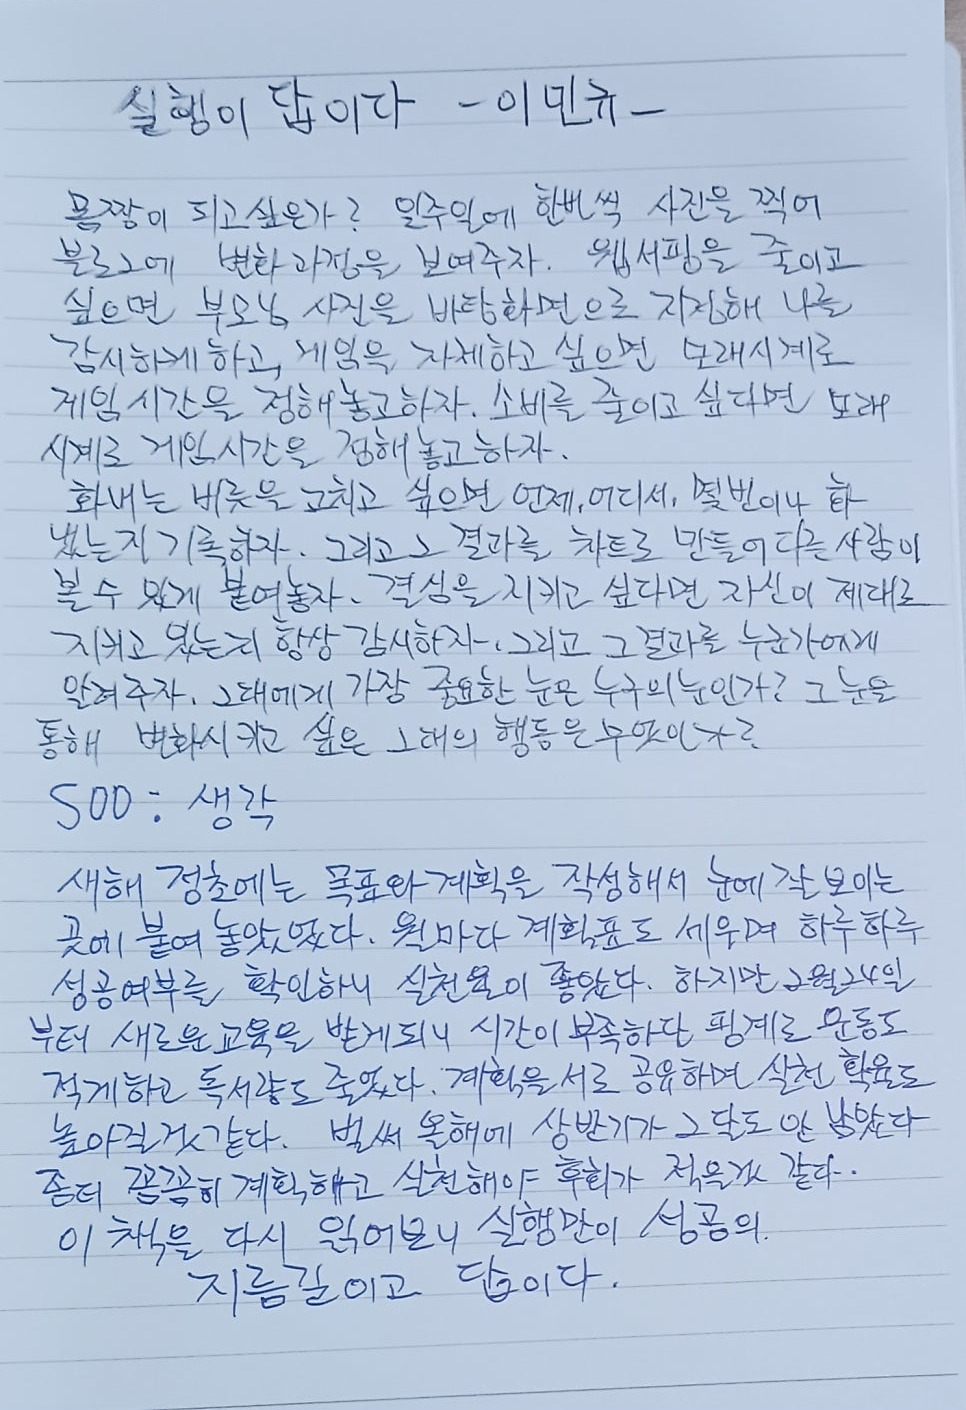 실행이 답이다 - 이민규 -
몸짱이 되고싶은가? 일주일에 한번씩 사진을 찍어
블로그에 변화과정을 보여주자. 웹서핑을 줄이고
싶으면 부모님 사진을 바탕화면으로 지정해 나를
감시하게 하고, 게임을 자제하고 싶으면 모래시계로
게임시간을 정해놓고하자. 소비를 줄이고 싶다면 모래
시계로 게임시간을 정해놓고하자.
화내는 버릇을 고치고 싶으면 언제, 어디서, 몇번이나 화
냈는지 기록하자. 그리고 그 결과를 차트로 만들어 다른사람이
볼 수 있게 붙여놓자. 결심을 지키고 싶다면 자신이 제대로
지키고 있는지 항상 감시하자. 그리고 그 결과를 누군가에게
알려주자. 그대에게 가장 중요한 눈은 누구의눈인가? 그 눈을
통해 변화시키고 싶은 그대의 행동은 무엇인가?
SOO : 생각
새해 정초에는 목표와 계획을 작성해서 눈에 잘 보이는
곳에 붙여 놓았었다. 월마다 계획표도 세우며 하루하루
성공여부를 확인하니 실천율이 좋았다. 하지만 2월24일
부터 새로운교육을 받게되니 시간이 부족하단 핑계로 운동도
적게하고 독서량도 줄었다. 계획을 서로 공유하면 실천 확율도
높아질것같다. 벌써 올해에 상반기가 그달도 안 남았다
좀더 꼼꼼히 계획하고 실천해야 후회가 적을것 같다.
이 책을 다시 읽어보니 실행만이 성공의
지름길이고 답이다.